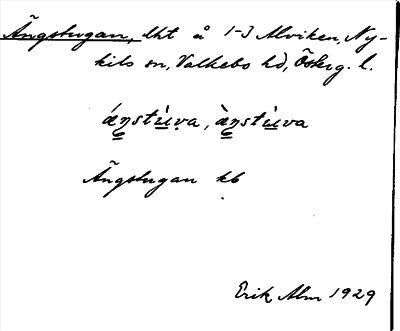 Ängstugan, lht å 1-3 Alviken, Ny-
kils sn, Valkebo hd, Österg. l.
áŋstùva, àŋstùva
Ängstugan kb
Erik Alm 1929